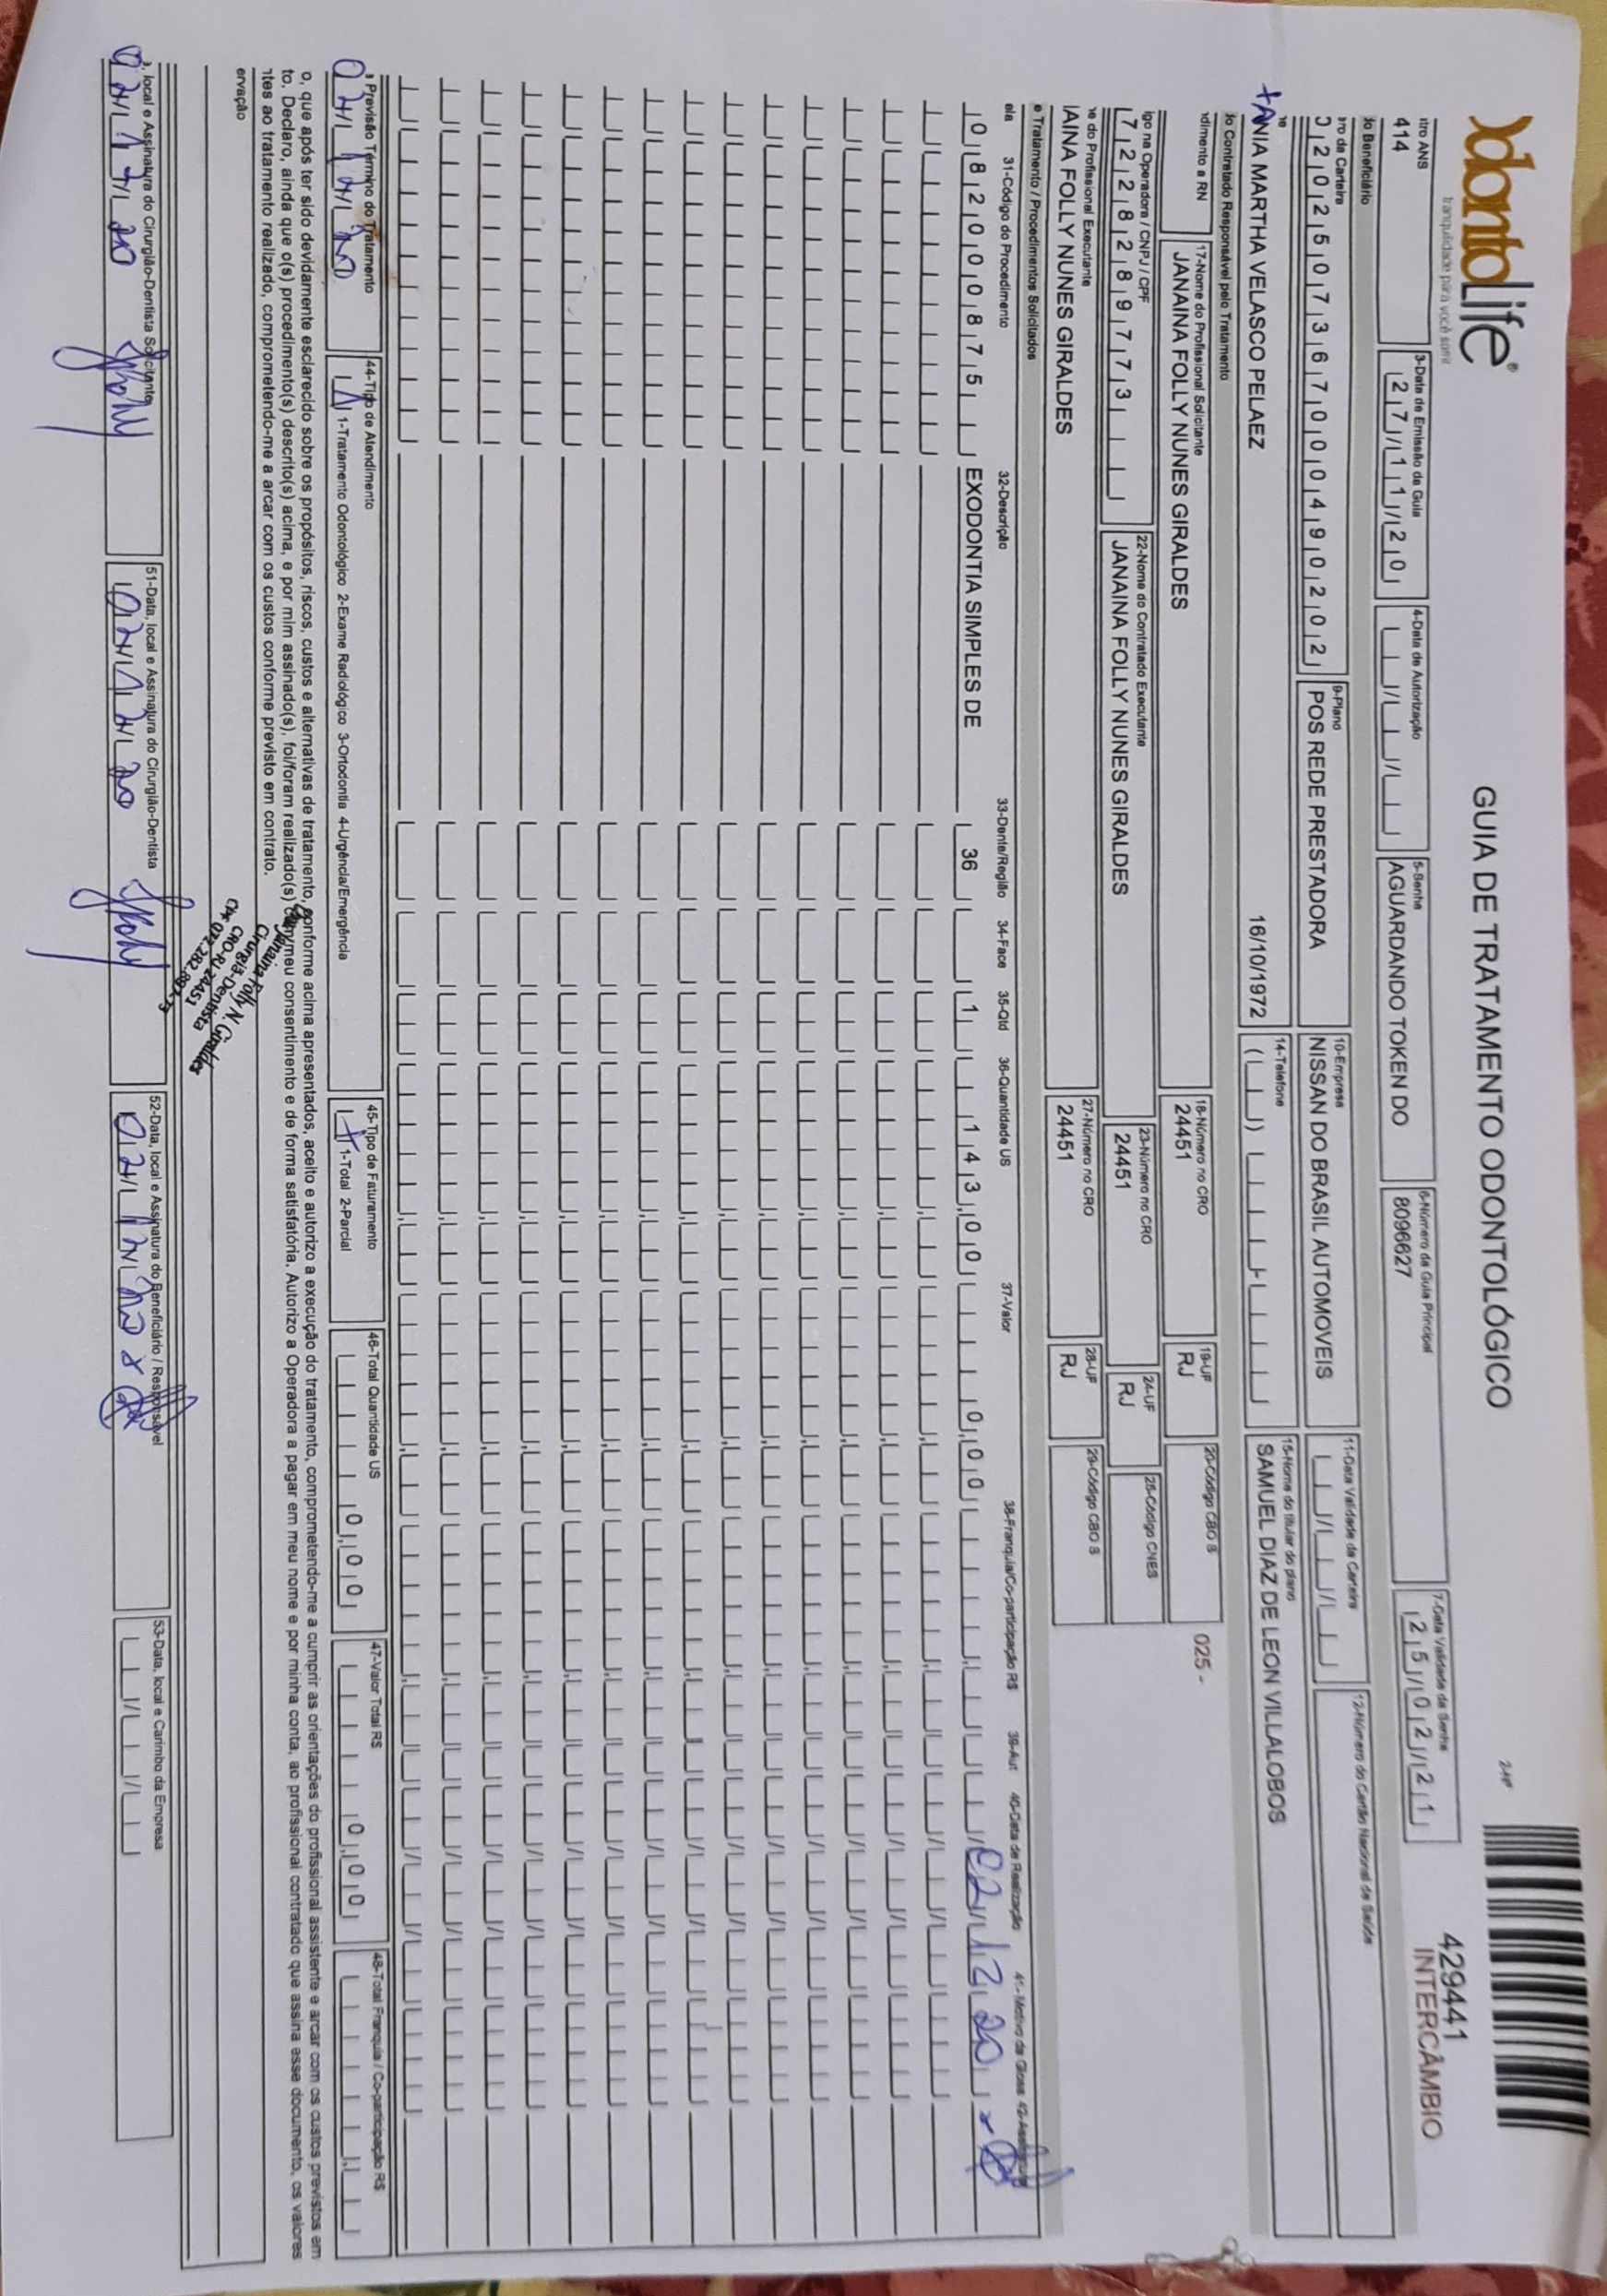 OdontoLife®
tranquilidade para você sorrir
GUIA DE TRATAMENTO ODONTOLÓGICO
2-Nº
429441
INTERCÂMBIO
stro ANS
414
3-Data de Emissão da Guia
27/11/20
4-Data de Autorização
5-Senha
AGUARDANDO TOKEN DO
6-Número da Guia Principal
8096627
7-Data Validade da Senha
25/02/21
do Beneficiário
ro da Carteira
0202507367000490202
9-Plano
POS REDE PRESTADORA
10-Empresa
NISSAN DO BRASIL AUTOMOVEIS
11-Data Validade da Carteira
12-Número do Cartão Nacional de Saúde
TANIA MARTHA VELASCO PELAEZ
16/10/1972
14-Telefone
15-Nome do titular do plano
SAMUEL DIAZ DE LEON VILLALOBOS
do Contratado Responsável pelo Tratamento
dimento a RN
17-Nome do Profissional Solicitante
JANAINA FOLLY NUNES GIRALDES
18-Número no CRO
24451
19-UF
RJ
20-Código CBO S
025 -
igo na Operadora / CNPJ / CPF
7228289773
22-Nome do Contratado Executante
JANAINA FOLLY NUNES GIRALDES
23-Número no CRO
24451
24-UF
RJ
25-Código CNES
ne do Profissional Executante
IAINA FOLLY NUNES GIRALDES
27-Número no CRO
24451
28-UF
RJ
29-Código CBO S
e Tratamento / Procedimentos Solicitados
ela 31-Código do Procedimento 32-Descrição 33-Dente/Região 34-Face 35-Qtd 36-Quantidade US 37-Valor 38-Franquia/Co-participação R$ 39-Aut 40-Data de Realização 41-Motivo da Glosa 42-Assinatura
0 82000875 EXODONTIA SIMPLES DE 36 1 143,00 0,00 02/12/20 x
Previsão Término do Tratamento
02/12/20
44-Tipo de Atendimento
1 1-Tratamento Odontológico 2-Exame Radiológico 3-Ortodontia 4-Urgência/Emergência
45-Tipo de Faturamento
1 1-Total 2-Parcial
46-Total Quantidade US
0,00
47-Valor Total R$
0,00
48-Total Franquia / Co-participação R$
o, que após ter sido devidamente esclarecido sobre os propósitos, riscos, custos e alternativas de tratamento, conforme acima apresentados, aceito e autorizo a execução do tratamento, comprometendo-me a cumprir as orientações do profissional assistente e arcar com os custos previstos em
to. Declaro, ainda que o(s) procedimento(s) descrito(s) acima, e por mim assinado(s), foi/foram realizado(s) com meu consentimento e de forma satisfatória. Autorizo a Operadora a pagar em meu nome e por minha conta, ao profissional contratado que assina esse documento, os valores
ntes ao tratamento realizado, comprometendo-me a arcar com os custos conforme previsto em contrato.
ervação
Janaina Folly N. Giraldes
Cirurgiã-Dentista
CRO-RJ 24451
CPF 072.282.897-73
, local e Assinatura do Cirurgião-Dentista Solicitante
02/12/20
51-Data, local e Assinatura do Cirurgião-Dentista
02/12/20
52-Data, local e Assinatura do Beneficiário / Responsável
02/12/20 x
53-Data, local e Carimbo da Empresa